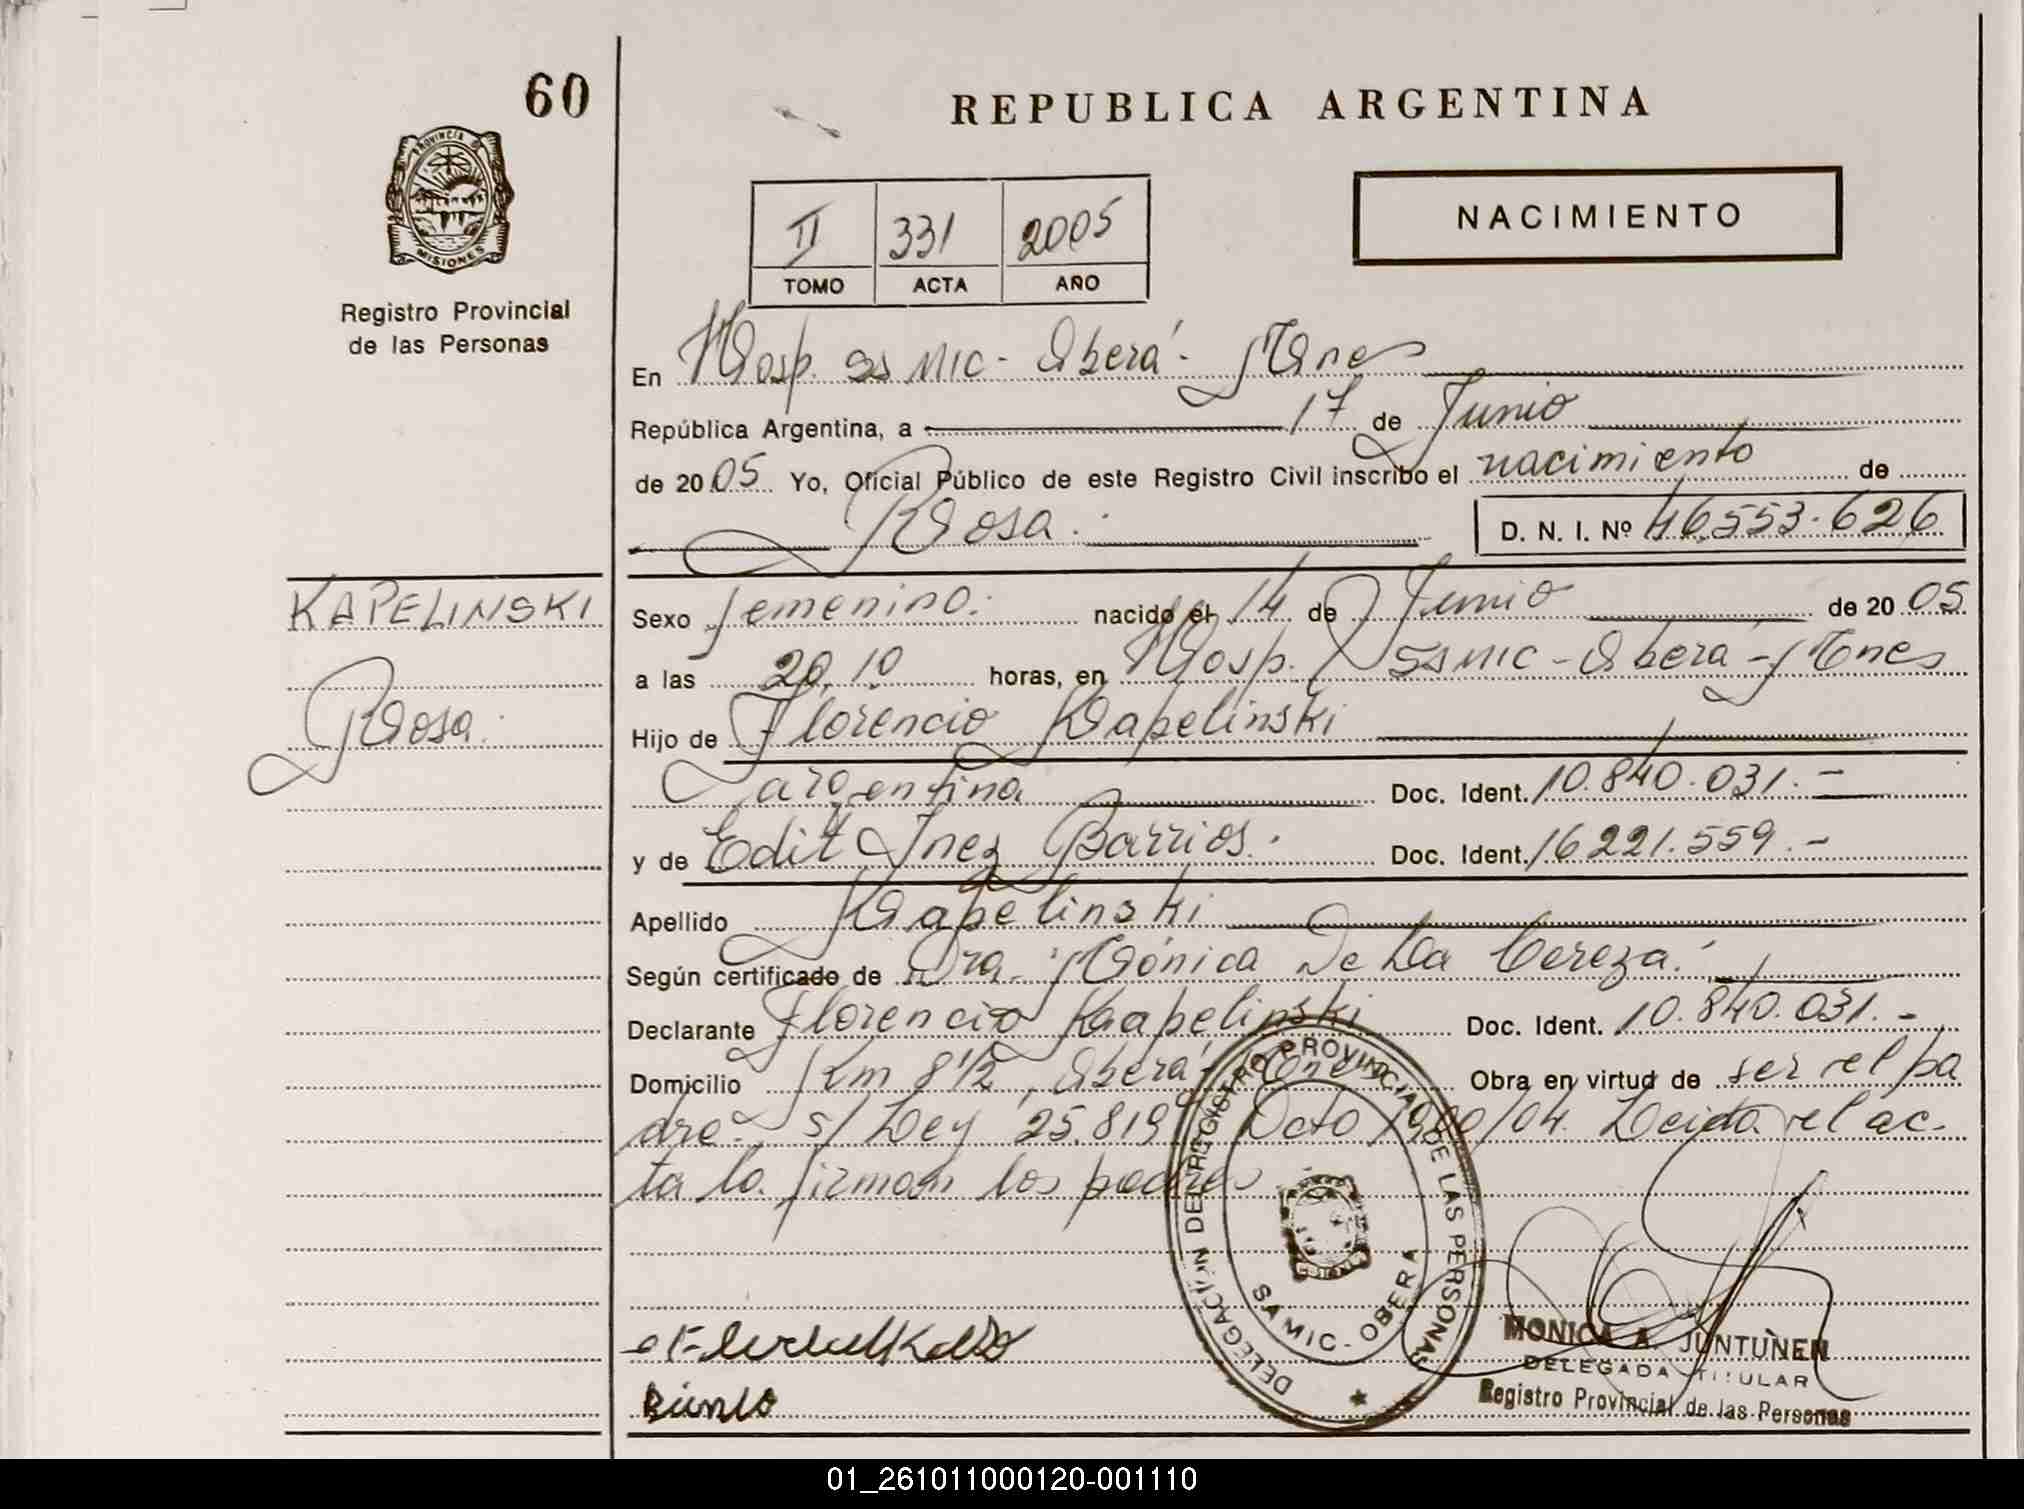 60
REPUBLICA ARGENTINA
PROVINCIA DE
MISIONES
Registro Provincial
de las Personas
II 331 2005
TOMO ACTA AÑO
NACIMIENTO
En Hosp. SAMIC - Oberá - Mnes
República Argentina, a 17 de Junio
de 2005 Yo, Oficial Público de este Registro Civil inscribo el nacimiento de
Rosa.
D. N. I. Nº 46.553.626
KAPELINSKI
Rosa.
Sexo femenino. nacido el 14 de Junio de 2005
a las 20,10 horas, en Hosp. SAMIC - Oberá - Mnes
Hijo de Florencio Kapelinski
argentina Doc. Ident. 10.840.031.-
y de Edit Inez Barrios. Doc. Ident. 16221.559.-
Apellido Kapelinski
Según certificado de Dra. Mónica De La Cereza.
Declarante Florencio Kapelinski Doc. Ident. 10.840.031.-
Domicilio Km 8 1/2, Oberá, Mnes Obra en virtud de ser el pa
dre. s/ Ley 25.819 Dcto 1900/04. Leida el ac-
ta la firman los padres
DELEGACIÓN DEL REGISTRO PROVINCIAL DE LAS PERSONAS
SAMIC - OBERA
MONICA A. JUNTUÑEN
DELEGADA TITULAR
Registro Provincial de las Personas
01_261011000120-001110